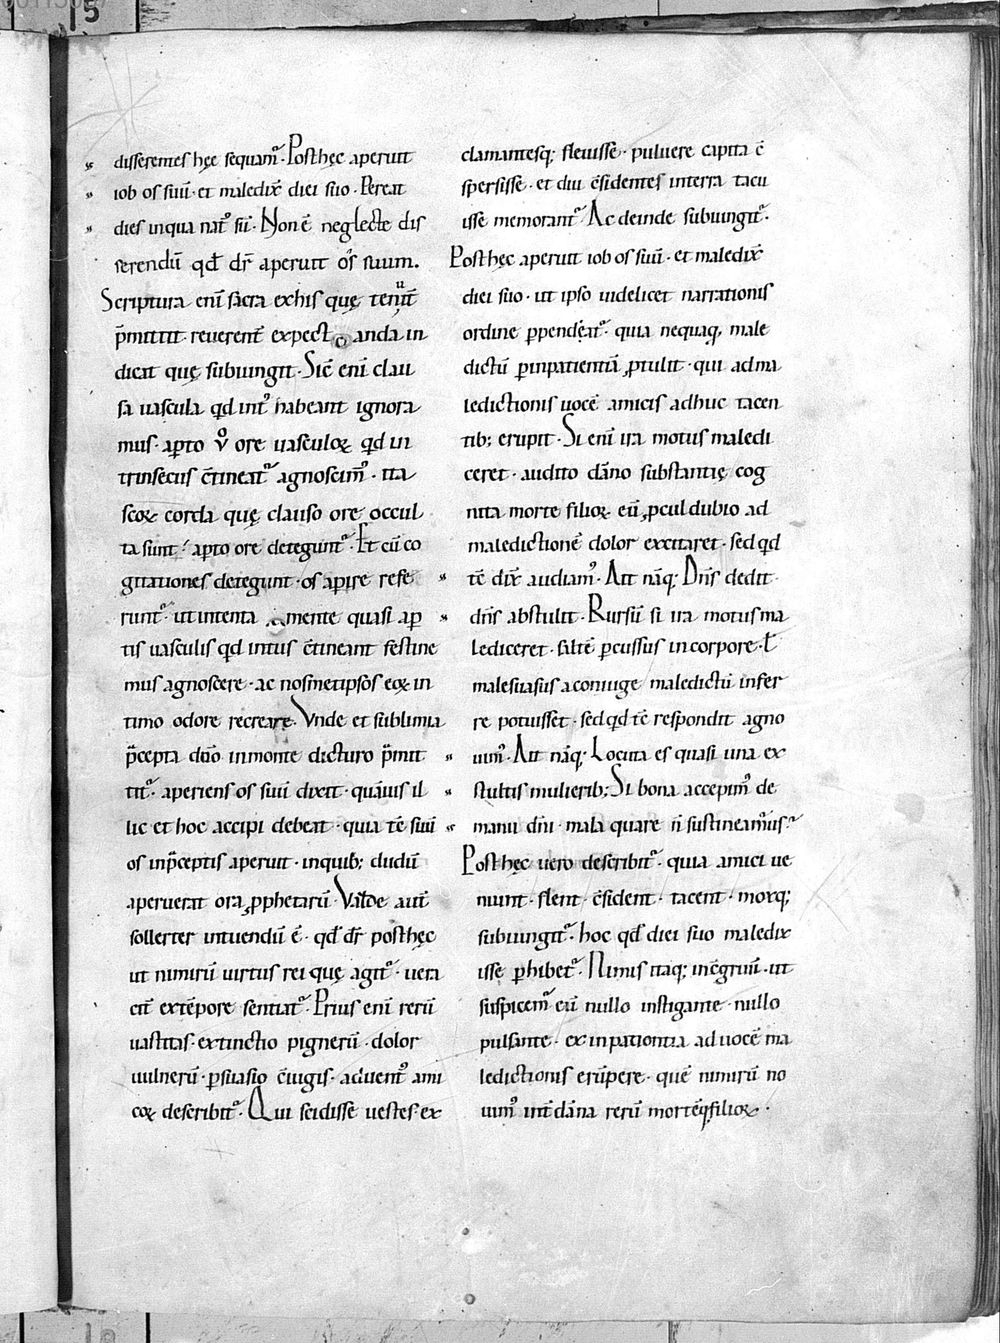 disserentes hęc sequamᷣ. Posthęc aperuit
iob os suū. et maledix̄ diei suo. Pereat
dies inqua natꝰ sū. Non ē neglecte dis
serendū qd̄ dr̄ aperuit os suum.
Scriptura enī sacra exhis quę tenuit
p̄mittit. reuerent̄ expectanda in
dicat quę subiungit. Sic̄ enī clau
sa uascula qd intꝰ habeant ignora
mus. apto v̊ ore uasculoꝝ qd in
trinsecus c̄tineatᷣ agnoscimꝰ. ita
scoꝝ corda quę clauso ore occul
ta sunt. apto ore deteguntᷣ. Et cū co
gitationes detegunt. os apire refe
runtᷣ. ut intenta mente quasi ap
tis uasculis qd intus c̄tineant festine
mus agnoscere. ac nosmetipsos eoꝝ in
timo odore recreare. Vnde et sublimia
p̄cepta dn̄o inmonte dicturo p̄mit
titᷣ. aperiens os suū dixit. quāuis il
lic et hoc accipi debeat. quia tē suū
os inp̄ceptis aperuit. inquib; dudū
aperuerat ora ꝓphetarū. Valde aut̄
sollerter intuendū ē. qd̄ dr̄ posthęc
ut nimirū uirtus rei quę agitᷣ. uera
cit̄ extēpore sentiatᷣ. Prius enī rerū
uastitas. extinctio pignerū. dolor
uulnerū. psuasio c̄iugis. aduentꝰ ami
coꝝ describitᷣ. Qui scidisse uestes. ex
clamantesq; fleuisse. puluere capita c̄
spersisse. et diu c̄sidentes interra tacu
isse memorantᷣ. Ac deinde subiungitᷣ.
Posthęc aperuit iob os suū. et maledix̄
diei suo. ut ipso uidelicet narrationis
ordine ppendeatᷣ. quia nequaq, male
dictū pinpatientiā ꝓtulit. qui ad ma
ledictionis uocē amicis adhuc tacen
tib; erupit. Si enī ira motus maledi
ceret. audito dāno substantię cog
nita morte filioꝝ. eū ꝓcul dubio ad
maledictionē dolor excitaret. sed qd
tē dix̄ audiamꝰ. Ait nāq; Dn̄s dedit
dn̄s abstulit. Rursū si ira motus ma
lediceret. saltē pcussus incorpore. ł
malesuasus a coniuge maledictū infer
re potuisset. sed qd tē respondit agno
uimꝰ. Ait nāq; Locuta es quasi una ex
stultis mulierib; Si bona accepimꝰ de
manu dn̄i. mala quare n̄ sustineamus?
Posthęc uero describitᷣ. quia amici ue
niunt. flent. c̄sident. tacent. moxq;
subiungitᷣ. hoc qd̄ diei suo maledix
isse phibetᷣ. Nimis itaq; incōgruū. ut
suspicemᷣ eū nullo instigante nullo
pulsante. ex inpationtia ad uocē ma
ledictionis erūpere. quē nimirū no
uimꝰ int̄ dāna rerū mortēq; filioꝝ.